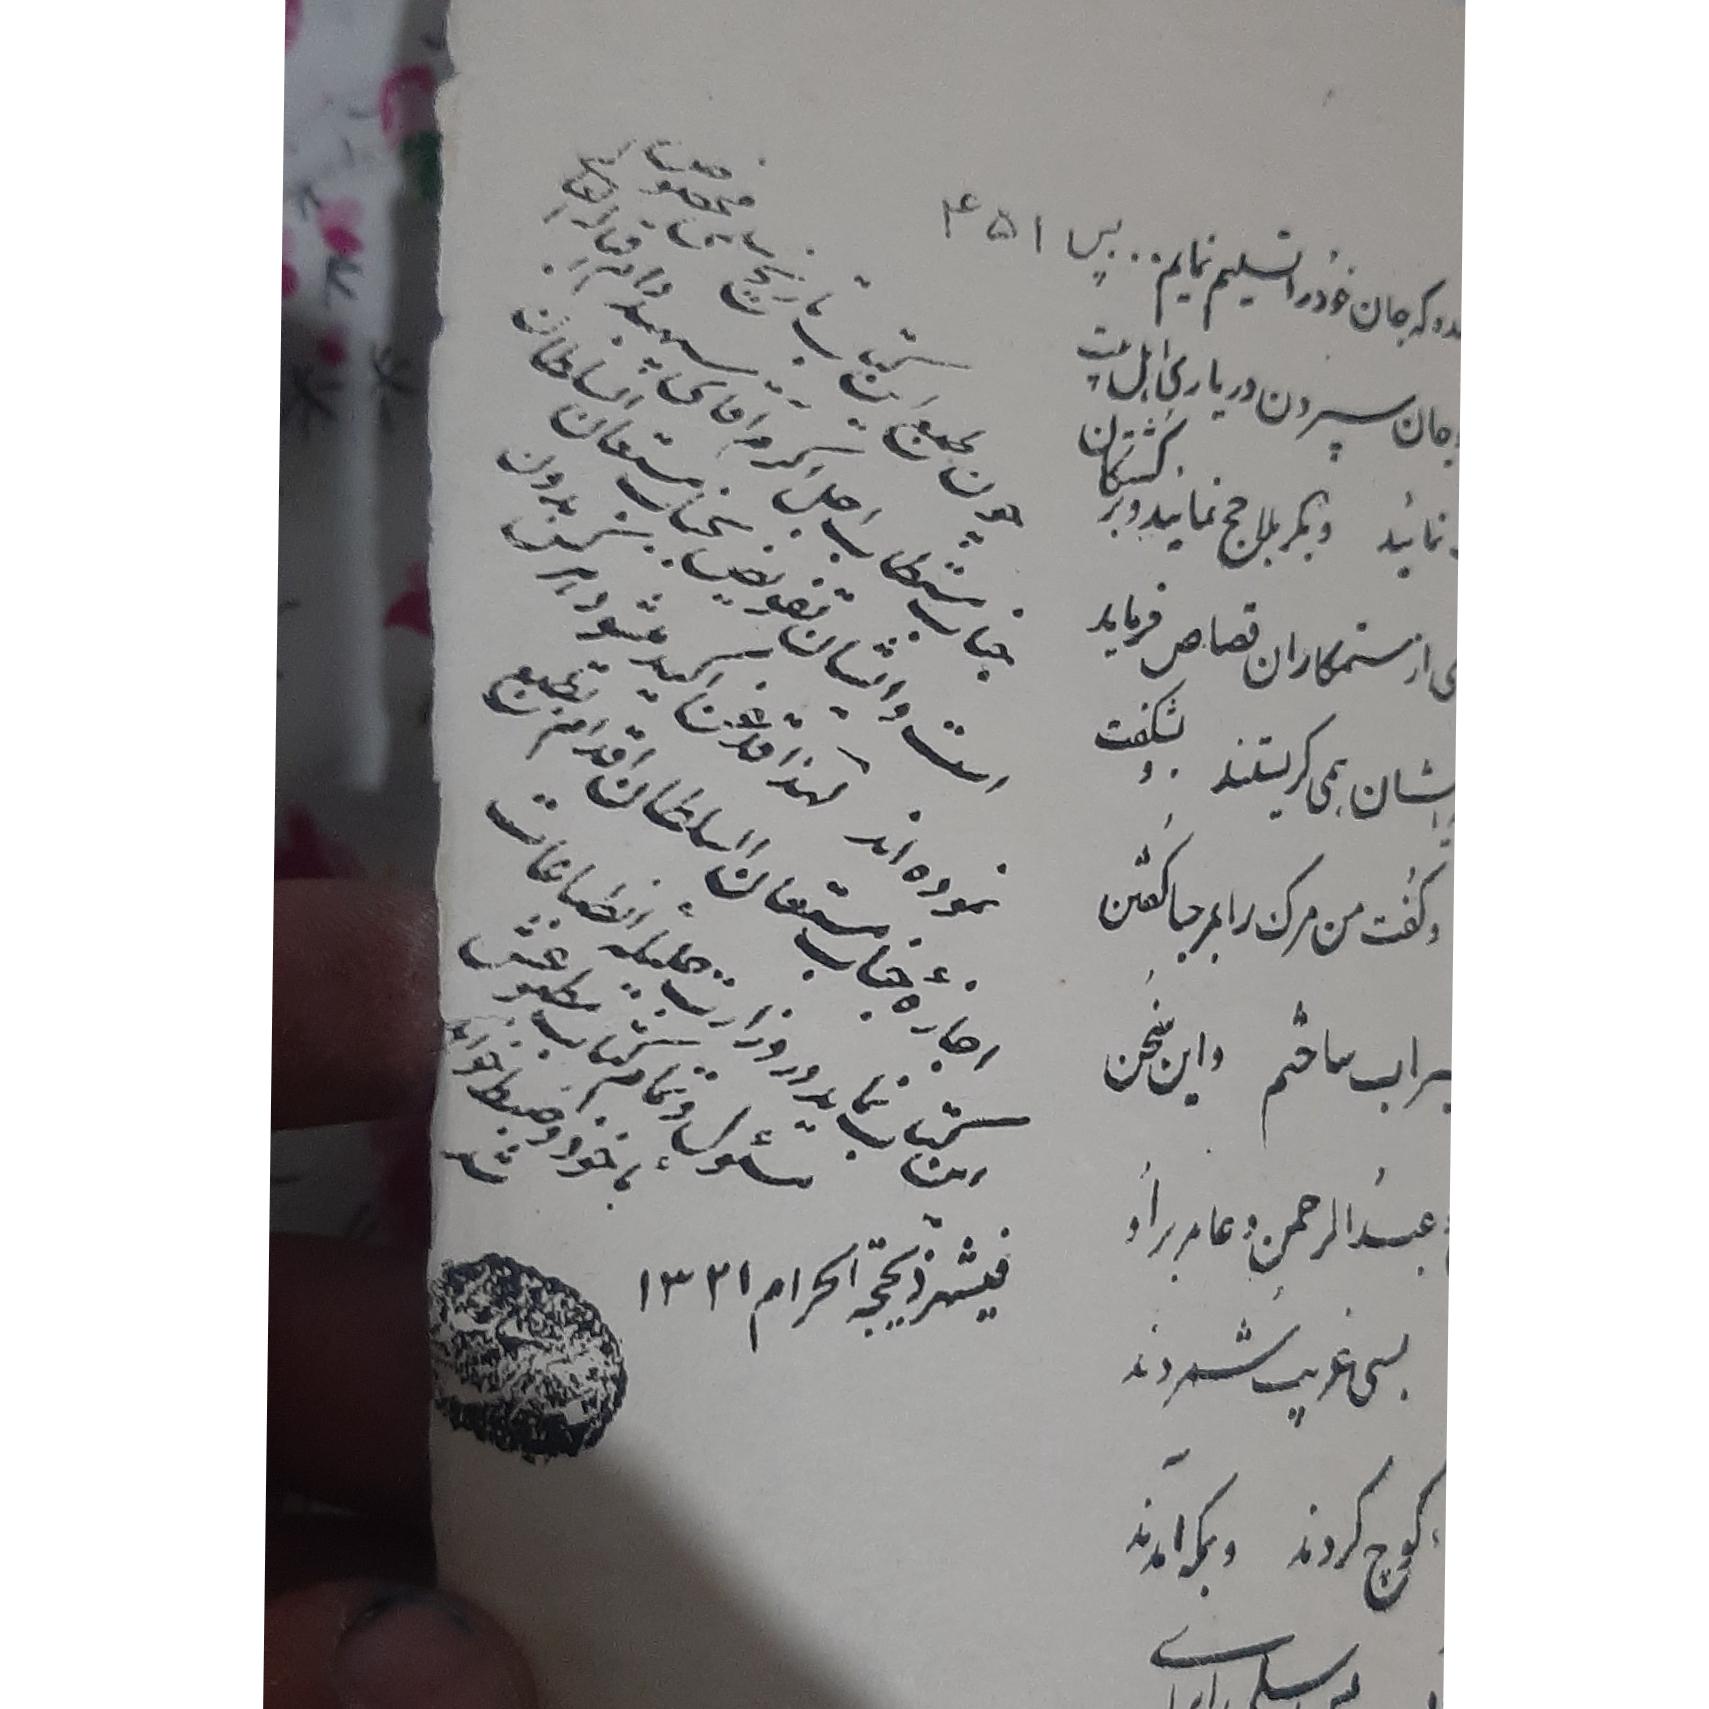 پس ۴۵۱
که جان خود را تسلیم نمایم..
وجان سپردن در یاری اهل بیت
نمائید و بکربلا حج نمایند و بر کشتگان
از ستمکاران قصاص فرماید
ایشان همی گریستند بشگفت و
و گفت من مرگ را مرحبا گفتن
سیراب ساختم و این سخن
عبدالرحمن و عامر براو
بسی غریب شمردند
کوچ کردند و بمکه آمدند
چون طبع این کتاب بتاریخ
جناب مستطاب اجل اکرم آقای سپهر دام اقباله العالی
است و ایشان تفویض بجناب مستعان السلطان
نموده اند لهذا قدغن اکید میشود هر کس بدون
اجازهٔ جناب مستعان السلطان اقدام بطبع
این کتاب نماید در وزارت جلیله انطباعات
مسئول و تمام کتاب مطبوعش
ماخوذ و ضبط خواهد شد
فیشهر ذیحجة الحرام ۱۳۲۱